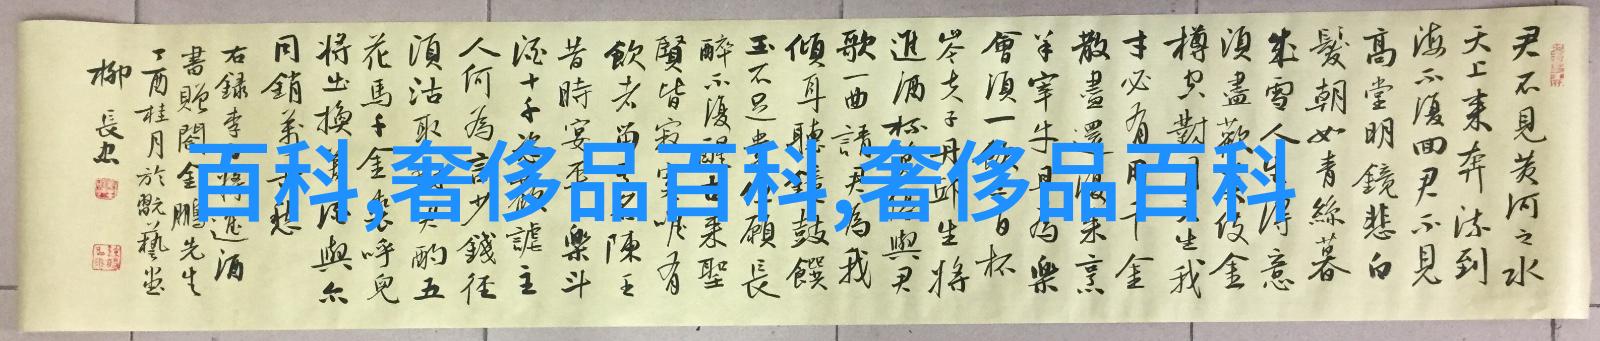 君不見黃河之水
天上来奔流到
海不復回君不見
高堂明鏡悲白
髮朝如青絲暮
成雪人生得意
須盡歡莫使金
樽空對月天生我
才必有用千金
散盡還復来烹
羊宰牛且為樂
會須一飲三百杯
岑夫子丹邱生將
進酒杯莫停與君
歌一曲請君為我
傾耳聽鐘鼓饌
玉不足貴但願長
醉不復醒古来聖
賢皆寂寞唯有
飲者留其名陳王
昔時宴平樂斗
酒十千恣歡謔主
人何為言少錢徑
須沽取對君酌五
花馬千金裘呼兒
將出換美酒與尔
同銷萬古愁
右録李白將進酒
書贈閻金鵬先生
丁酉桂月於翫藝堂
柳長忠
百科,奢侈品百科,奢侈品百科